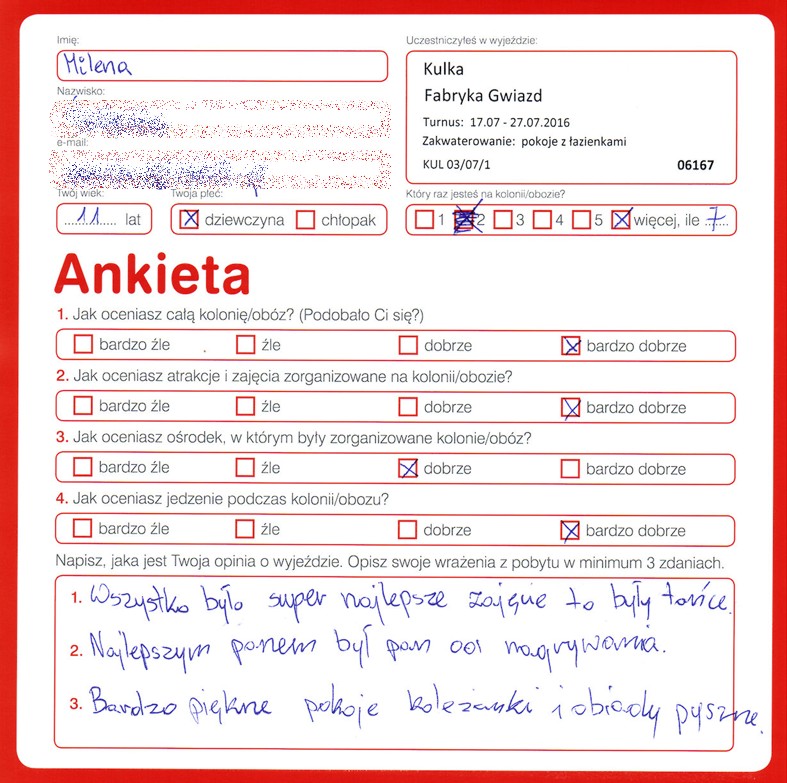 Imię:
Uczestniczyłeś w wyjeździe:
Milena
Kulka
Fabryka Gwiazd
Turnus: 17.07 - 27.07.2016
Zakwaterowanie: pokoje z łazienkami
KUL 03/07/1 06167
Nazwisko:
e-mail:
Twój wiek:
Twoja płeć:
Który raz jesteś na kolonii/obozie?
11 lat
dziewczyna chłopak
1 2 3 4 5 więcej, ile 7
Ankieta
1. Jak oceniasz całą kolonię/obóz? (Podobało Ci się?)
bardzo źle źle dobrze bardzo dobrze
2. Jak oceniasz atrakcje i zajęcia zorganizowane na kolonii/obozie?
bardzo źle źle dobrze bardzo dobrze
3. Jak oceniasz ośrodek, w którym były zorganizowane kolonie/obóz?
bardzo źle źle dobrze bardzo dobrze
4. Jak oceniasz jedzenie podczas kolonii/obozu?
bardzo źle źle dobrze bardzo dobrze
Napisz, jaka jest Twoja opinia o wyjeździe. Opisz swoje wrażenia z pobytu w minimum 3 zdaniach.
1. Wszystko było super najlepsze zajęcie to były tańce.
2. Najlepszym panem był pan od nagrywania.
3. Bardzo piękne pokoje koleżanki i obiady pyszne.